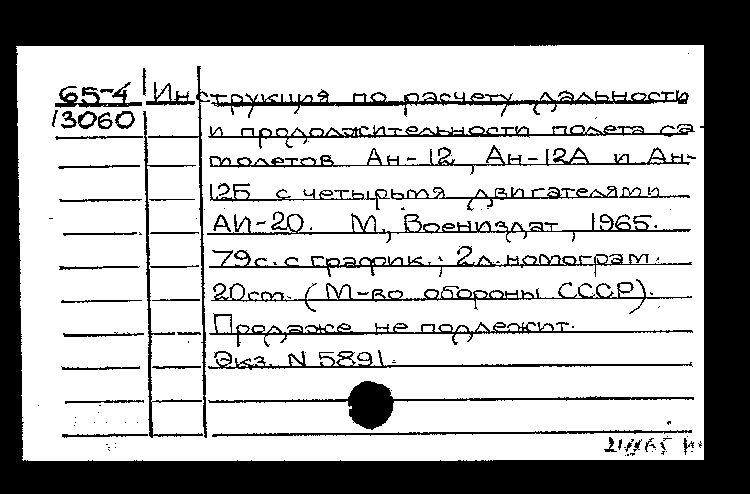 65-4 Инструкция по расчету дальности
13060 и продолжительности полета са-
молетов Ан-12, Ан-12А и Ан-
12Б с четырьмя двигателями
АИ-20. М., Воениздат, 1965.
79с. с график.; 2л. номограм.
20см. (М-во обороны СССР).
Продаже не подлежит.
Экз. N 5891.